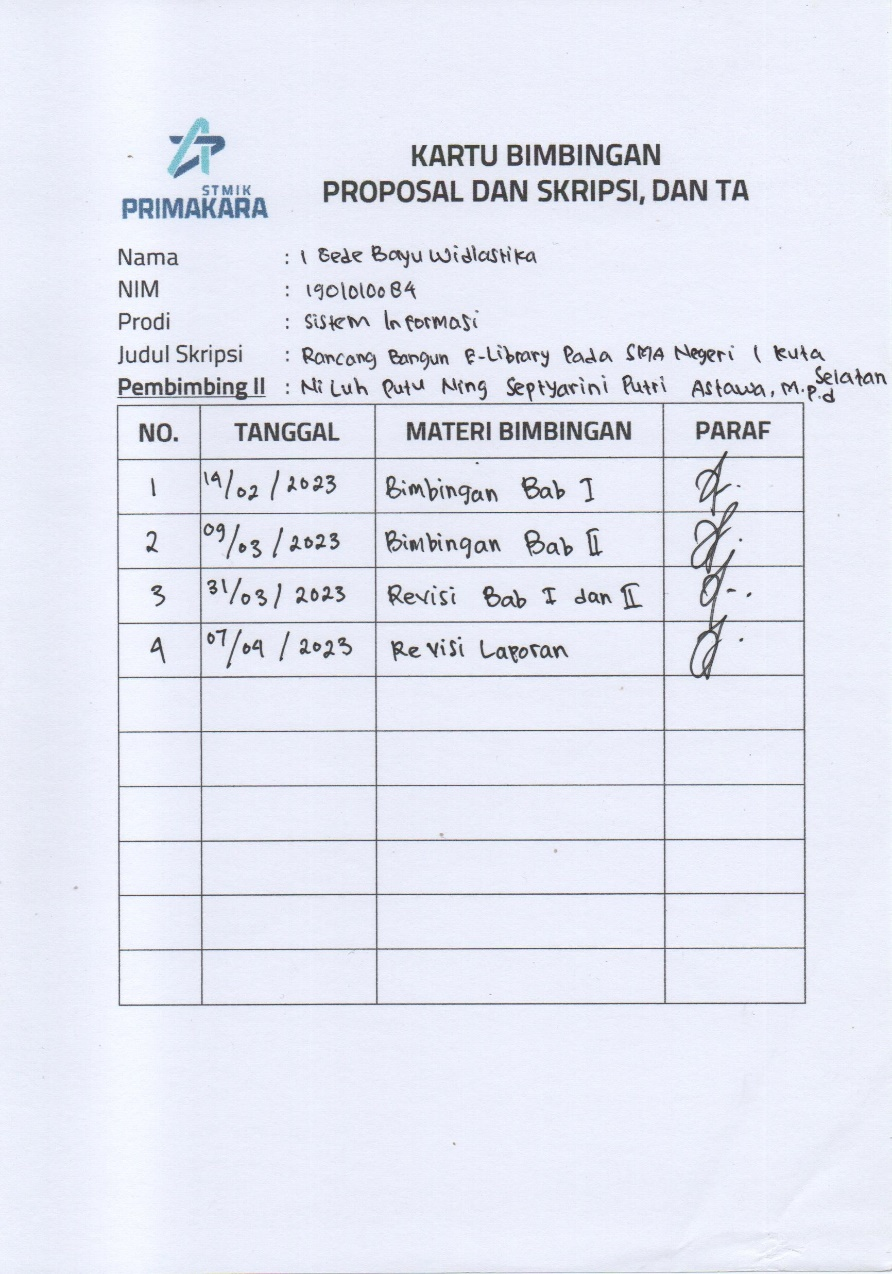 STMIK
PRIMAKARA
KARTU BIMBINGAN
PROPOSAL DAN SKRIPSI, DAN TA
Nama : I Gede Bayu Widiastika
NIM : 1901010084
Prodi : Sistem Informasi
Judul Skripsi : Rancang Bangun E-Library Pada SMA Negeri 1 Kuta Selatan
Pembimbing II : Ni Luh Putu Ning Septyarini Putri Astawa, M.p.d
NO. TANGGAL MATERI BIMBINGAN PARAF
1 14/02/2023 Bimbingan Bab I
2 09/03/2023 Bimbingan Bab II
3 31/03/2023 Revisi Bab I dan II
4 07/04/2023 Revisi Laporan